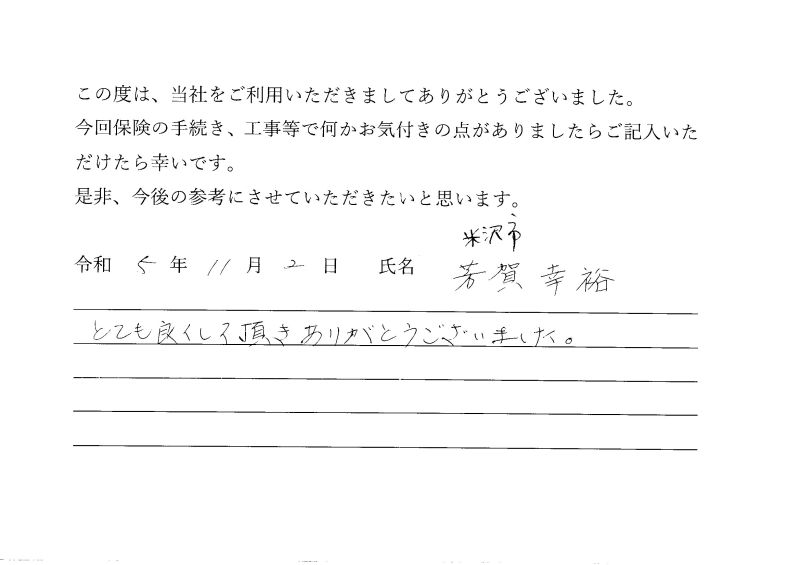 この度は、当社をご利用いただきましてありがとうございました。
今回保険の手続き、工事等で何かお気付きの点がありましたらご記入いた
だけたら幸いです。
是非、今後の参考にさせていただきたいと思います。
米沢市
令和 5 年 11 月 2 日 氏名 芳賀 幸裕
とても良くして頂きありがとうございました。